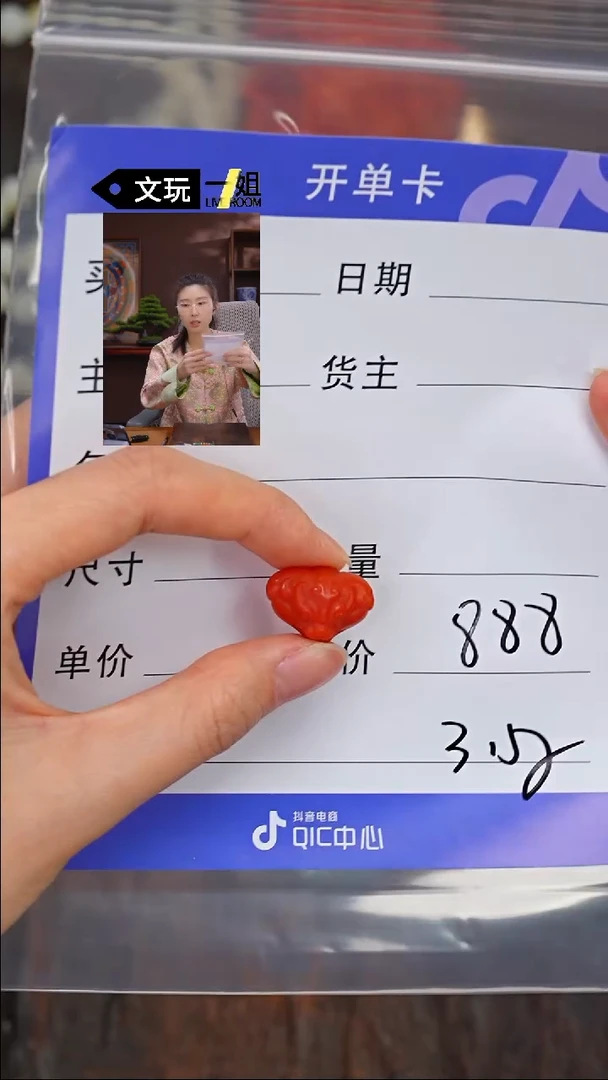 文玩一姐
LIVE ROOM
开单卡
日期
货主
尺寸
量
单价
价
888
3.15g
抖音电商
QIC中心